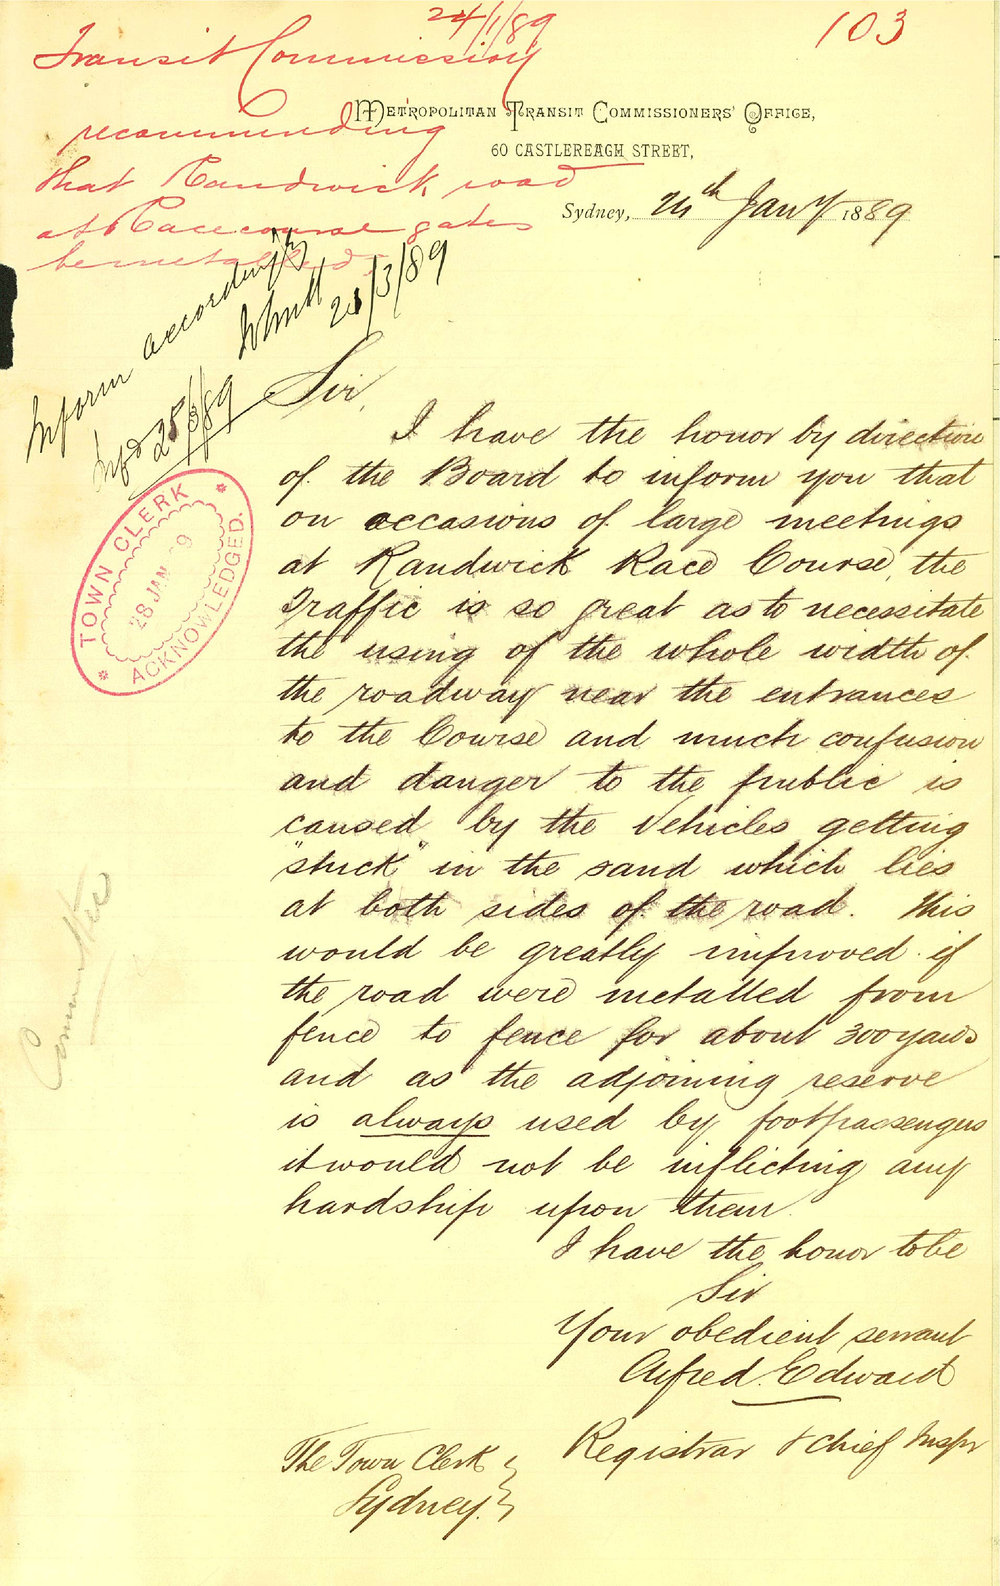 24/1/89
103
Transit Commission
recommending
that Randwick road
at Racecourse gates
be metalled
METROPOLITAN TRANSIT COMMISSIONERS' OFFICE,
60 CASTLEREAGH STREET,
Sydney, 24th Jany 1889
Inform accordingly
21/3/89
Infd 25/3/89
TOWN CLERK
28 JAN 89
ACKNOWLEDGED.
Sir,
I have the honor by direction
of the Board to inform you that
on occasions of large meetings
at Randwick Race Course, the
Traffic is so great as to necessitate
the using of the whole width of
the roadway near the entrances
to the Course and much confusion
and danger to the public is
caused by the Vehicles getting
"stuck" in the sand which lies
at both sides of the road. This
would be greatly improved if
the road were metalled from
fence to fence for about 300 yards
and as the adjoining reserve
is always used by footpassengers
it would not be inflicting any
hardship upon them.
I have the honor to be
Sir
Your obedient servant
Alfred Edward
Registrar & Chief Inspr
The Town Clerk
Sydney.